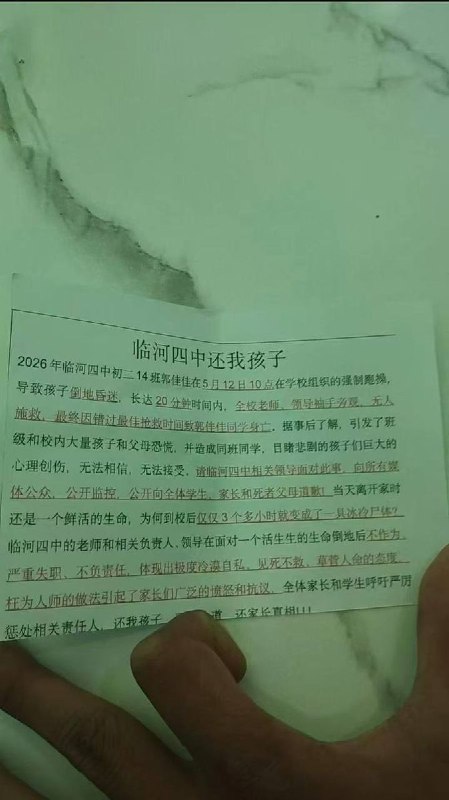 临河四中还我孩子
2026年临河四中初二14班郭佳佳在5月12日10点在学校组织的强制跑操,
导致孩子倒地昏迷,长达20分钟时间内,全校老师、领导袖手旁观,无人
施救,最终因错过最佳抢救时间致郭佳佳同学身亡,据事后了解,引发了班
级和校内大量孩子和父母恐慌,并造成同班同学,目睹悲剧的孩子们巨大的
心理创伤,无法相信,无法接受,请临河四中相关领导面对此事,向所有媒
体公众,公开监控,公开向全体学生、家长和死者父母道歉!当天离开家时
还是一个鲜活的生命,为何到校后仅仅3个多小时就变成了一具冰冷尸体?
临河四中的老师和相关负责人、领导在面对一个活生生的生命倒地后不作为、
严重失职、不负责任,体现出极度冷漠自私、见死不救、草菅人命的态度,
枉为人师的做法引起了家长们广泛的愤怒和抗议、全体家长和学生呼吁严厉
惩处相关责任人,还我孩子 道,还家长真相!!!